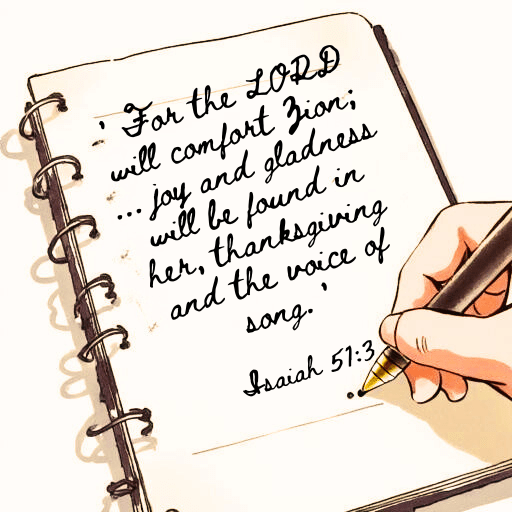 ' For the LORD
will comfort Zion;
... joy and gladness
will be found in
her, thanksgiving
and the voice of
song.'
Isaiah 51:3